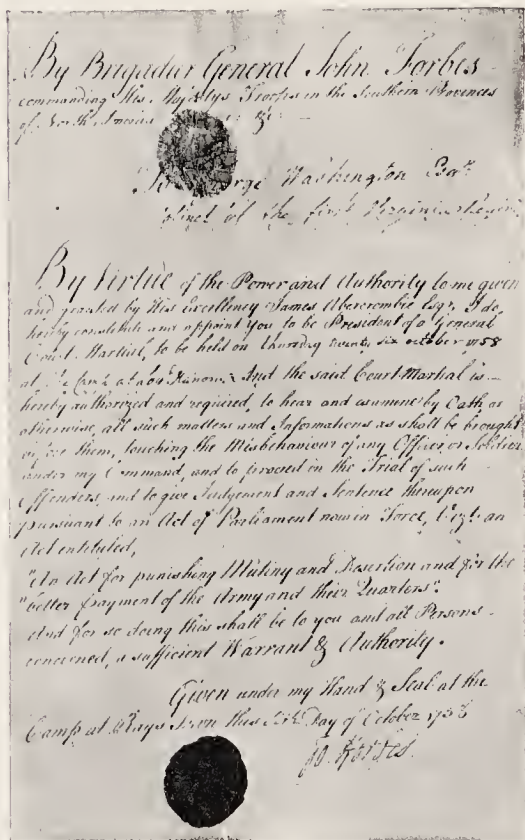 By Brigadier General John Forbes
commanding His Majestys Troops in the Southern Provinces
of North America &c
To George Washington Esqr.
Colonel of the first Virginia
By Virtue of the Power and Authority to me given
and granted by His Excellency James Abercrombie Esqr. I do
hereby constitute and appoint you to be President of a General
Court Martial, to be held on thursday twenty six october 1758
at the Camp at And the said Court Martial is
hereby authorized and required, to hear and examine by Oath or
otherwise, all such matters and Informations as shall be brought
before them, touching the Misbehaviour of any Officer or Soldier
under my Command, and to proceed in the Trial of such
Offenders, and to give Judgement and Sentence thereupon
pursuant to an Act of Parliament now in Force, an
Act entituled,
"An Act for punishing Mutiny and Desertion and for the
"better payment of the Army and their Quarters".
And for so doing this shall be to you and all Persons
concerned, a sufficient Warrant & Authority.
Given under my Hand & Seal at the
Camp at Rays Town this Day of October 1758
Jo. Forbes